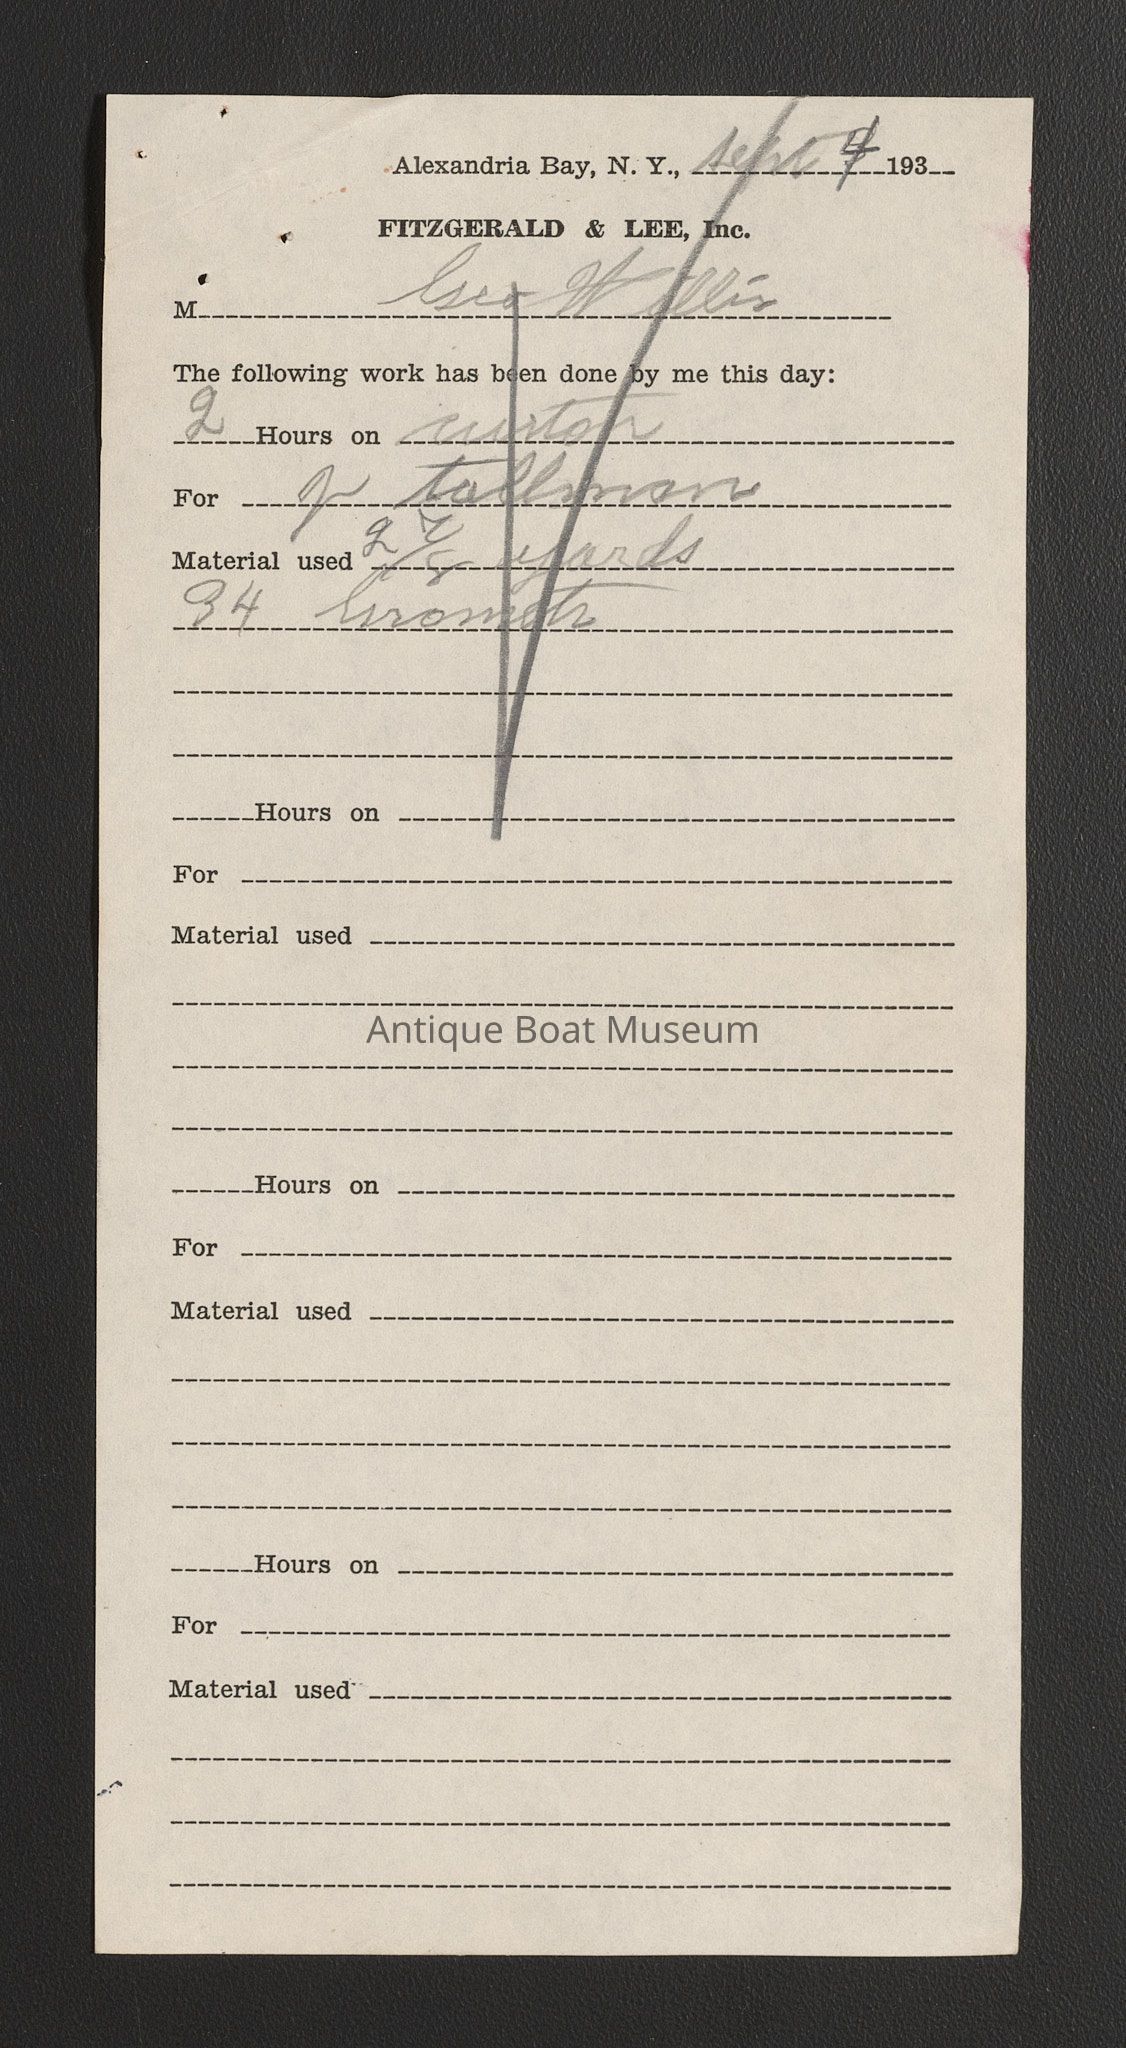 Alexandria Bay, N. Y., Sept 4 193
FITZGERALD & LEE, Inc.
M Geo Willis
The following work has been done by me this day:
2 Hours on curton
For J tallman
Material used 2 7/8 yards
34 Gromets
Hours on
For
Material used
Antique Boat Museum
Hours on
For
Material used
Hours on
For
Material used